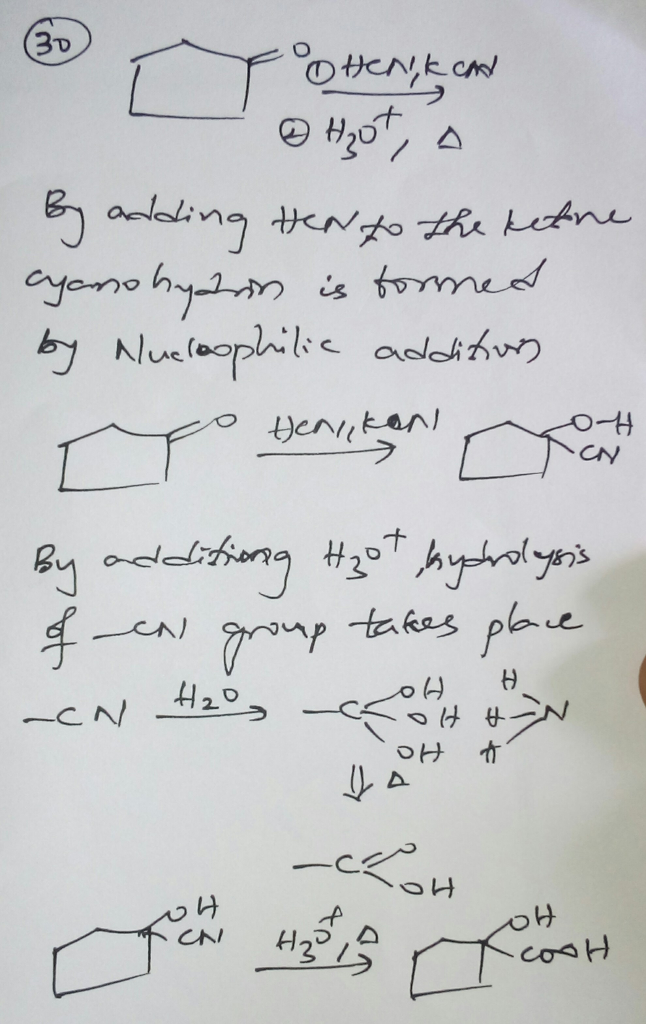 30
O ① HCN, KCN
② H3O+, Δ
By adding HCN to the ketone
cyanohydrin is formed
by Nucleophilic addition
O HCN, KCN O-H
CN
By additiong H3O+, hydrolysis
of -CN group takes place
-CN H2O -C OH OH OH H H H N
Δ
-C O OH
OH CN H3O+, Δ OH COOH